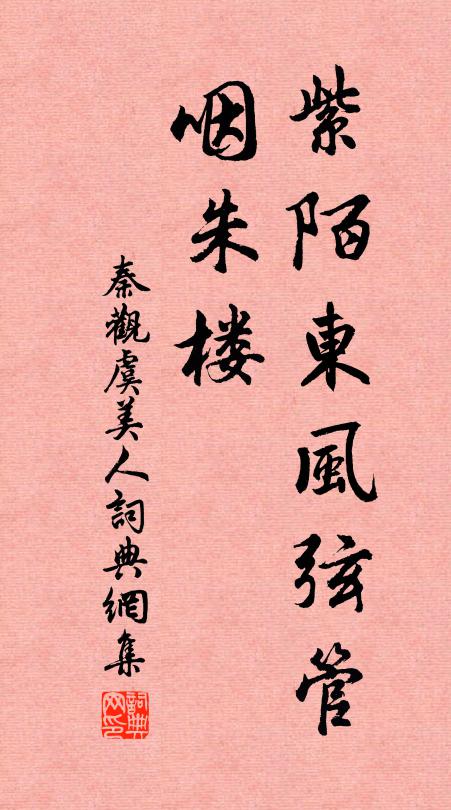 紫陌東風弦管
咽朱楼
秦觀虞美人詞典網集
詞典
网印